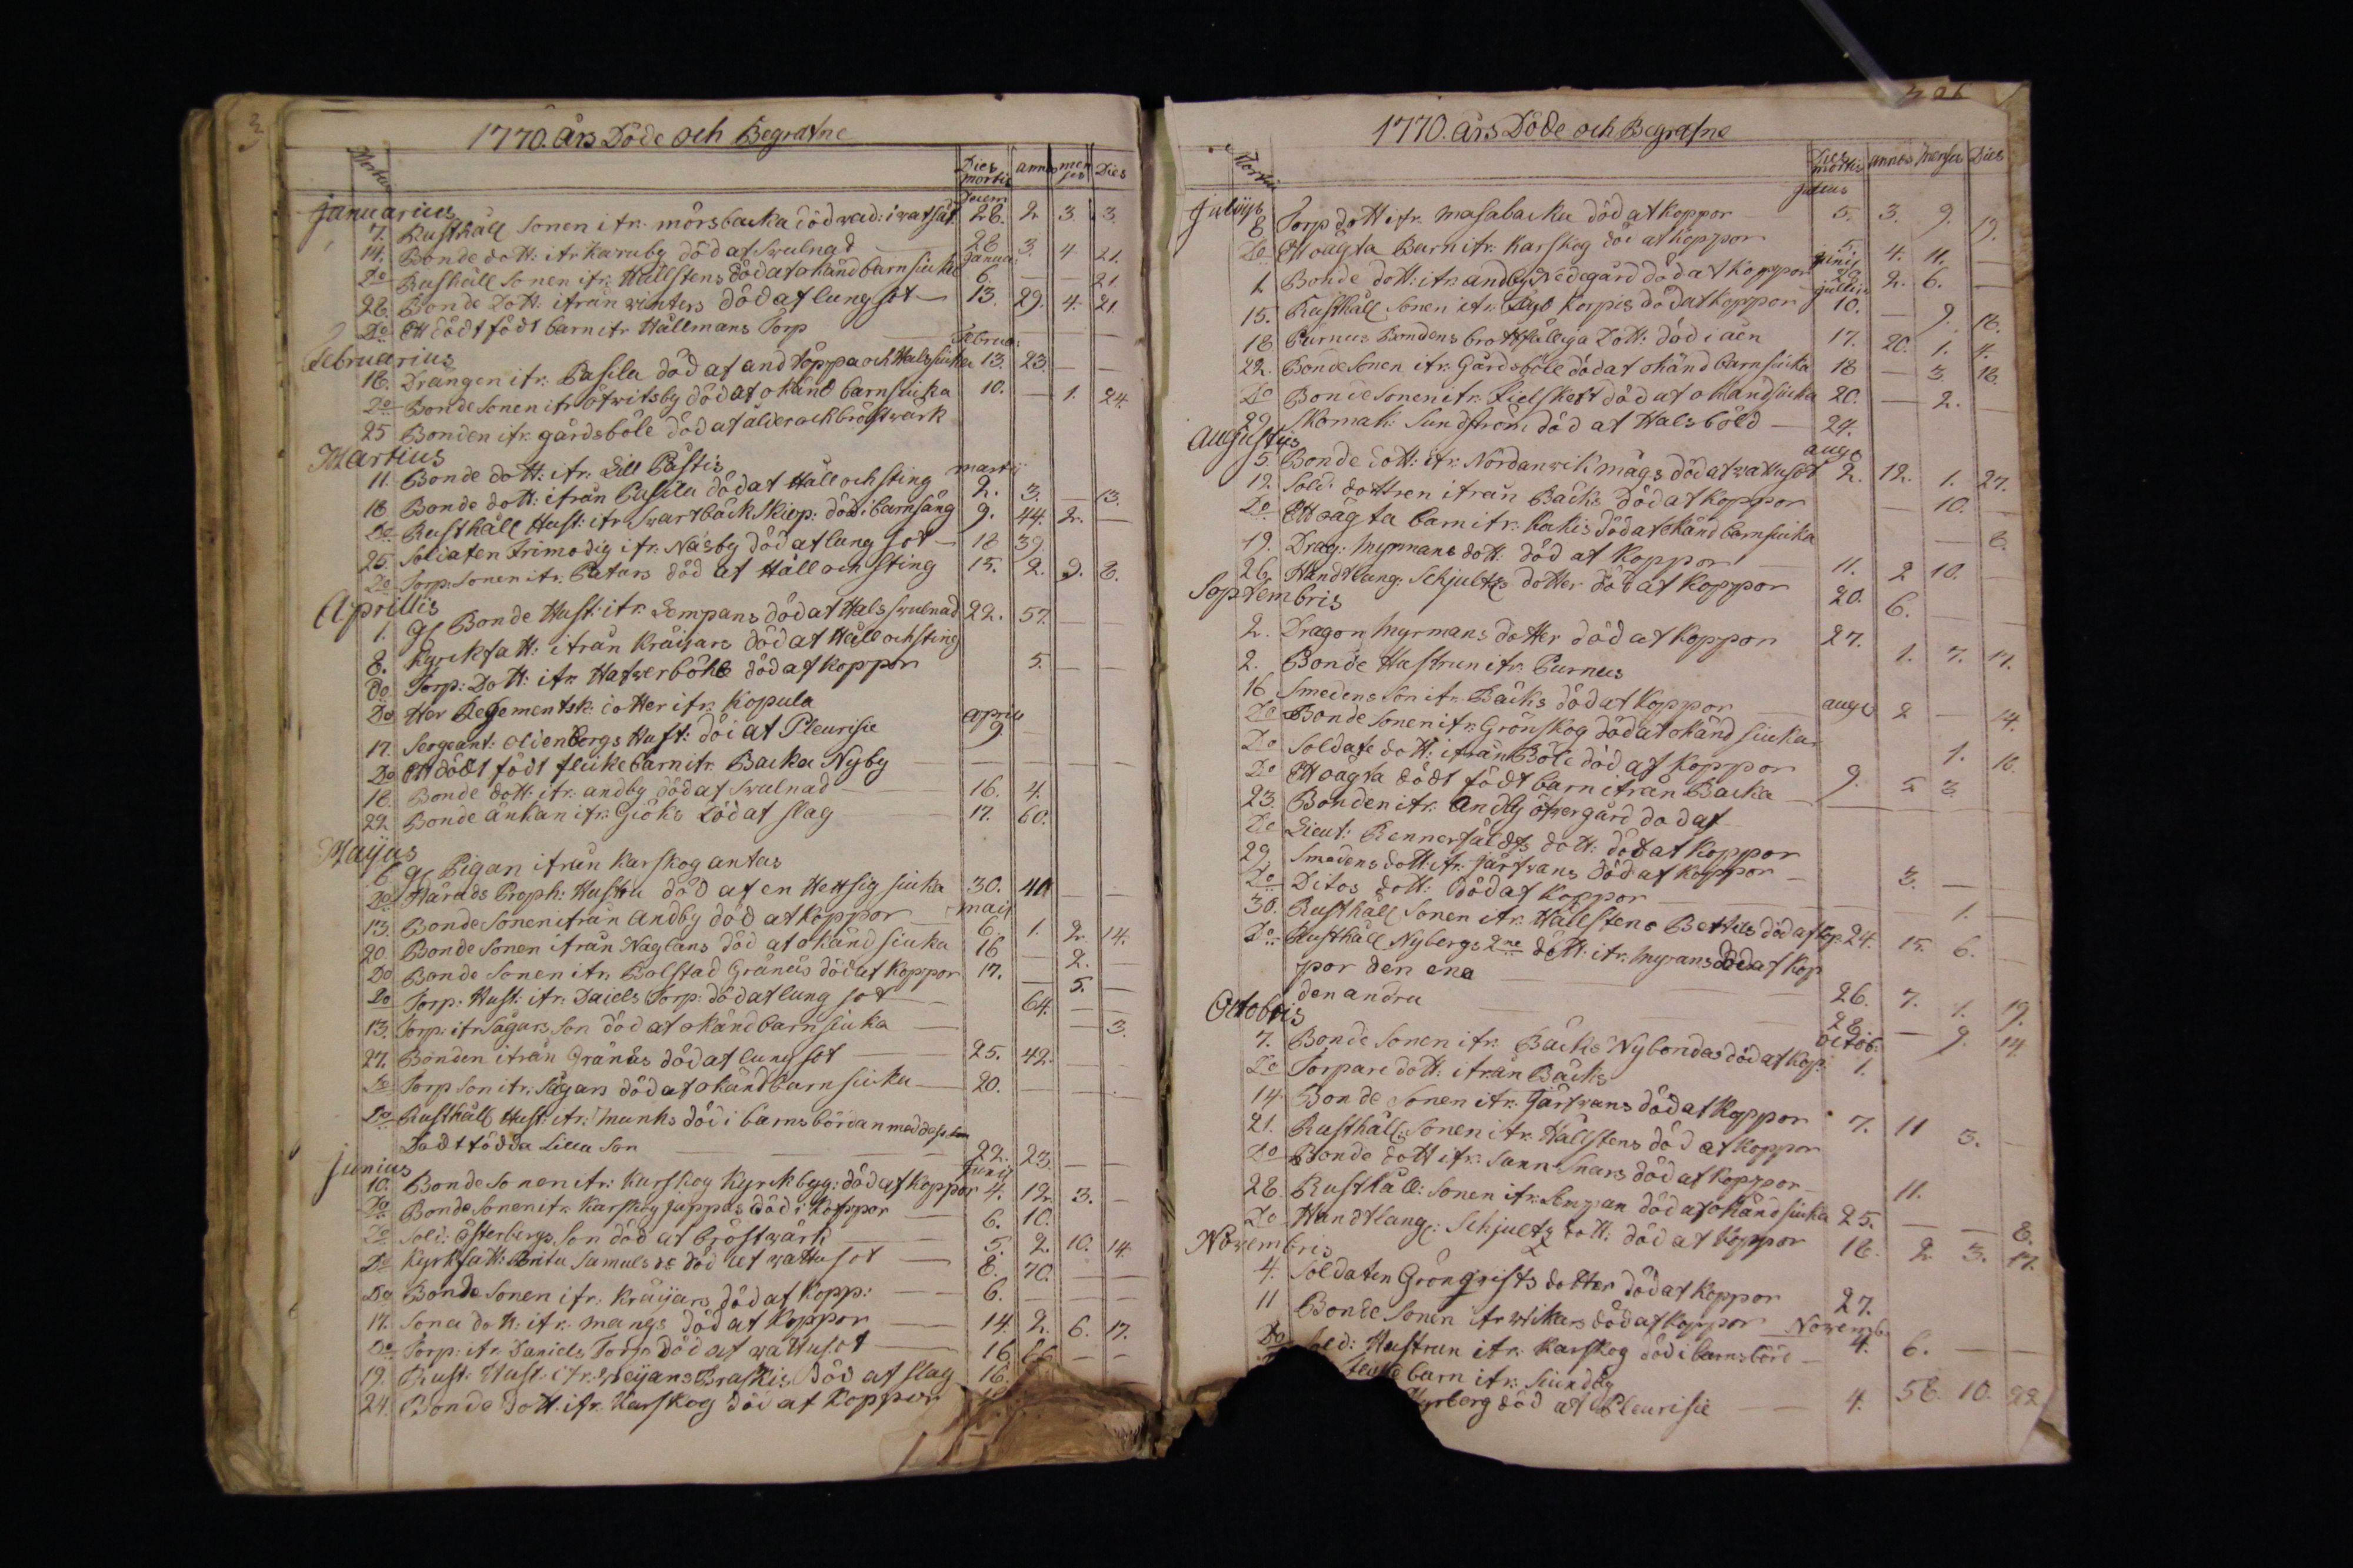 3
1770. års Döde och Begrafne
Dies mortis annos menses Dies
Januarius
7. Rusthåll Sonen ifr. mörsbacka död 28. 2 3. 3.
14. Bonde dott: ifr Karuby död af Swulnad 28 3. 4 21.
Januar:
Do Rusthåll Sonen ifr. Hällstens död af okänd barnsiuka 6. — 21.
28. Bonde Dott: ifrån winters död af lungsot — 13. 29. 4. 21.
Do Ett dödt född barn ifr Hällmans Torp
Februarius
Februa:
18. Drängen ifr. Pasila död af andtäppa och Halssiuka 13. 23. — —
Do Bonde Sonen ifr öfwitsby död af okänd barnsiuka 10. — 1. 24.
25 Bonden ifr. gårdsböle död af ålder och bröstwärk
Martius
11. Bonde dott: ifr. Lill Pastis
martij
18 Bonde dott: ifrån Pasila död af Håll och sting 2. 3. — 13.
Do Rusthåll Hust: ifr Swartbäck Skiep: död i barnsäng 9. 44. 2. —
25. Soldaten Frimodig ifr. Näsby död af lungsot — 18 39.
Do Torp: Sonen ifr. Petars död af Håll och sting 15. 2. 9. 8.
Aprillis
1. Gl Bonde Hust: ifr. Lempans död af Halsswulnad 22. 57. —
8. Kyrckfatt: ifrån Kräijars död af Håll och sting
Do Torp: Dott: ifr. Hatwerböhle död af koppor 5. — —
Do Her Regementsk: dotter ifr. Kopula
april
17. Sergeant: Oldenbergs Hust: död af Pleurisie 9 —
Do Ett dödt född flickebarn ifr. Backa Nyby
18. Bonde dott: ifr. andby död af Swulnad 16. 4.
22 Bonde änkan ifr. Giöks död af slag 17. 60.
Maijus
6. Gl Pigan ifrån Karskog antas
Do Härads Proph: Hustru död af en Hettsig siuka 30. 40 —
maij
13. Bonde Sonen ifrån andby död af koppor 6. 1. 2. 14.
20. Bonde Sonen ifrån Naglans död af okänd siuka 16 — 2. —
Do Bonde Sonen ifr. Bolstad Gränäs död af koppor 17. — 5. —
Do Torp: Hust: ifr. Daiels Torp: död af lungsot — 64. —
13. Torp: ifr Sågars son död af okänd barnsiuka — — 3.
27. Bonden ifrån Gränäs död af lungsot 25. 42.
Do Torp son ifr. Sågars död af okänd barn siuka 20.
Do Rusthåll Hust: ifr: Munks död i barnsbördan med des
Dödt födda Lilla Son 22. 23. —
Junius
Junij
10. Bonde Sonen ifr: Karskog Kyrckbyg: död af koppor 4. 12. 3. —
Do Bonde Sonen ifr. Karskog Juppas död i koppor 6. 10.
Do Sold: Österbergs son död af bröstwärk 5. 2. 10. 14.
Do Kyrkfatt: Brita Samuels dr död af wattusot 8. 70. —
Do Bonde Sonen ifr. Kräijars död af kopp: 6.
17. Sona dott: ifr. Mangs död af koppor 14. 2. 6. 17.
Do Torp: ifr. Daniels Torp. död af wattusot 16 — —
19. Rust: Hust: ifr. Weijans Braskis död af slag 16.
24. Bonde dott: ifr. Karskog död af koppor
1770. års Döde och Begrafne
Dies mortis annos menses Dies
Juliijs
Julius
8 Torp dott ifr. Masabacka död af koppor 5. 3. 9. 19.
Do Ett oägta Barn ifr. Karskog död af koppor 5. 4. 11. —
Junij
1. Bonde dott: ifr andby Nedegård död af koppor 29 2. 6. —
jullii
15. Rusthåll Sonen ifr. Korpis död af koppor 10. — 9. 18.
18. Purnus Bondens brottfälliga Dott: död i åen 17. 20. 1. 4.
22. Bonde Sonen ifr. Gårdsböle död af okänd barnsiuka 18 — 3. 18.
Do Bonde Sonen ifr. Fielskeft död af okänd siuka 20. — 2. —
29. Skomak: Sundström död af Halsböld — 24.
Augustus
aug
5. Bonde dott: ifr. Nordanwik mägs död af wattusot 2. 12. 1. 27.
12. Sold: dottren ifrån Bäcks död af koppor — 10. —
Do Ett oägta barn ifr. Kakis död af okänd barnsiuka — 8.
19. Drag: Myrmans dott. död af koppor — 11. 2 10.
26. Handtlang: Schjultz dotter död af koppor 20. 6. —
September
2. Dragon Myrmans dotter död af koppor 27. 1. 7. 17.
2. Bonde Hustrun ifr. Purnus
16. Smedens son ifr. Bäcks död af koppor aug 2 — 14.
Do Bonde Sonen ifr. Grönskog död af okänd siuka 1. 18.
Do Soldate dott: ifrån Böle död af koppor 9. 5 3.
Do Ett oägta dödt född barn ifrån Backa —
23. Bonden ifr. Andby öfwergård död af
Do Lieut: Rennerfäldts dott: död af koppor
29. Smedens dott: ifr. Järfwans död af koppor — 3. —
Do Ditos dott: död af koppor — 1. —
30. Rusthåll Sonen ifr. Hällstens Bettils död af kop 24. 15. 6. —
Do Rusthåll Nybergs 2ne dött: ifr. Myrans död af Kop
por den ena — 26. 7. 1. 19.
den andra — 28. — 9. 14.
Octobris
Octob:
7. Bonde Sonen ifr. Bäcks Nybondas död af kop: 1.
Do Torpare dott: ifrån Bäcks
14. Bonde Sonen ifr. Järfwans död af koppor 7. 11 3. —
21. Rusthåll: Sonen ifr. Hällstens död af koppor
Do Bonde dott ifr. Sann Snars död af koppor — 11.
28. Rusthåll: Sonen ifr. Lempan död af okänd siuka 25. — — 8.
Do Handtlang: Schjultz dott: död af koppor 18. 2 3. 17.
Nowembris
4. Soldaten Grönqvists dotter död af koppor 27.
Nowemb.
11 Bonde Sonen ifr wikars död af koppor 4. 6. —
Do Sold: Hustrun ifr. Karskog död i barnsbörd
barn ifr. Siundby
Nyrberg död af Pleurisie — 4. 58. 10. 22